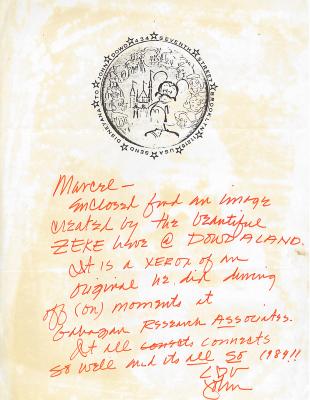 SEND DISNEYANA TO ☆ JOHN ☆ DOWD ☆ 434 ☆ SEVENTH ☆ STREET ☆ BROOKLYN ☆ 11215 ☆ USA ☆
Marcel —
Enclosed find an image
created by the beautiful
ZEKE here @ DOWDALAND.
It is a XEROX of an
original he did during
off (on) moments at
Research Associates.
It all connects
so well and its all SO 1989!!
LUV
John